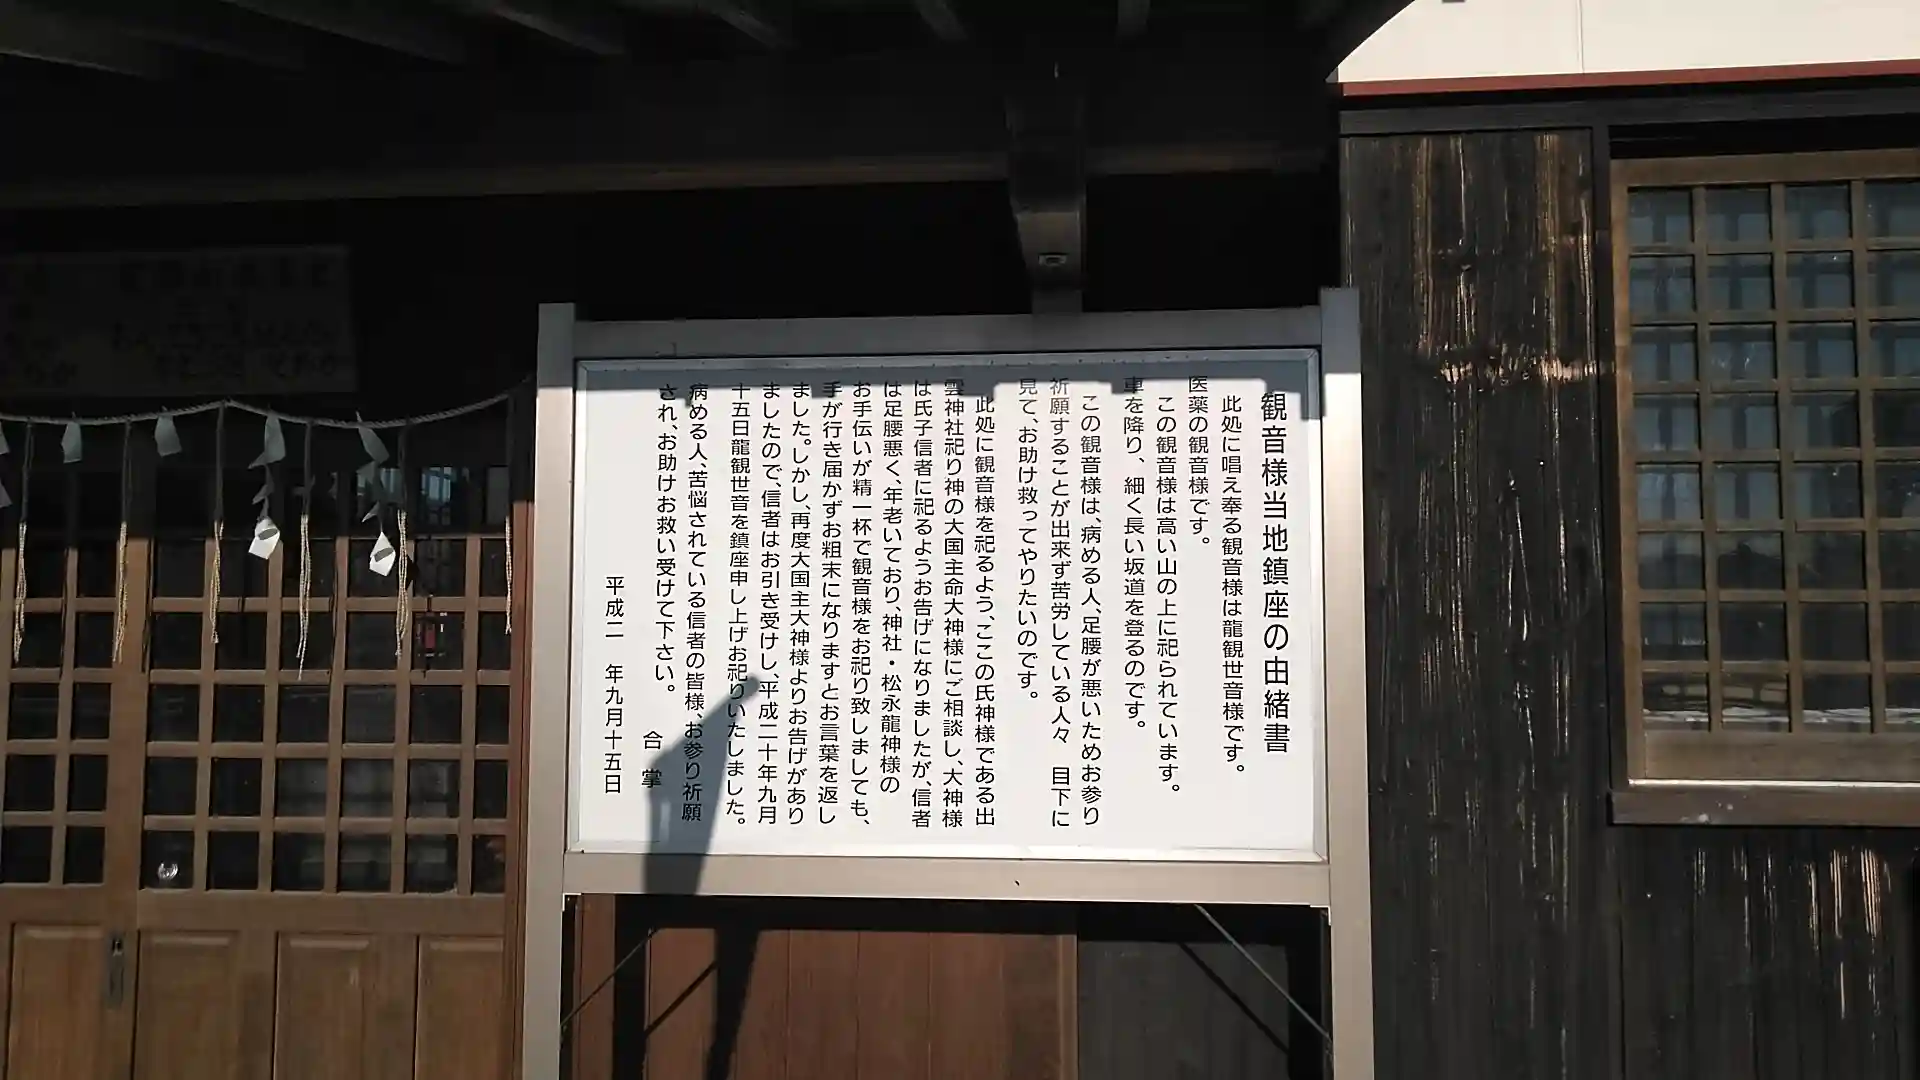 観音様当地鎮座の由緒書
此処に唱え奉る観音様は龍観世音様です。
医薬の観音様です。
この観音様は高い山の上に祀られています。
車を降り、細く長い坂道を登るのです。
この観音様は、病める人、足腰が悪いためお参り
祈願することが出来ず苦労している人々 目下に
見て、お助け救ってやりたいのです。
此処に観音様を祀るよう、ここの氏神様である出
雲神社祀り神の大国主命大神様にご相談し、大神様
は氏子信者に祀るようお告げになりましたが、信者
は足腰悪く、年老いており、神社・松永龍神様の
お手伝いが精一杯で観音様をお祀り致しましても、
手が行き届かずお粗末になりますとお言葉を返し
ました。しかし、再度大国主大神様よりお告げがあり
ましたので、信者はお引き受けし、平成二十年九月
十五日龍観世音を鎮座申し上げお祀りいたしました。
病める人、苦悩されている信者の皆様、お参り祈願
され、お助けお救い受けて下さい。
合 掌
平成二 年九月十五日